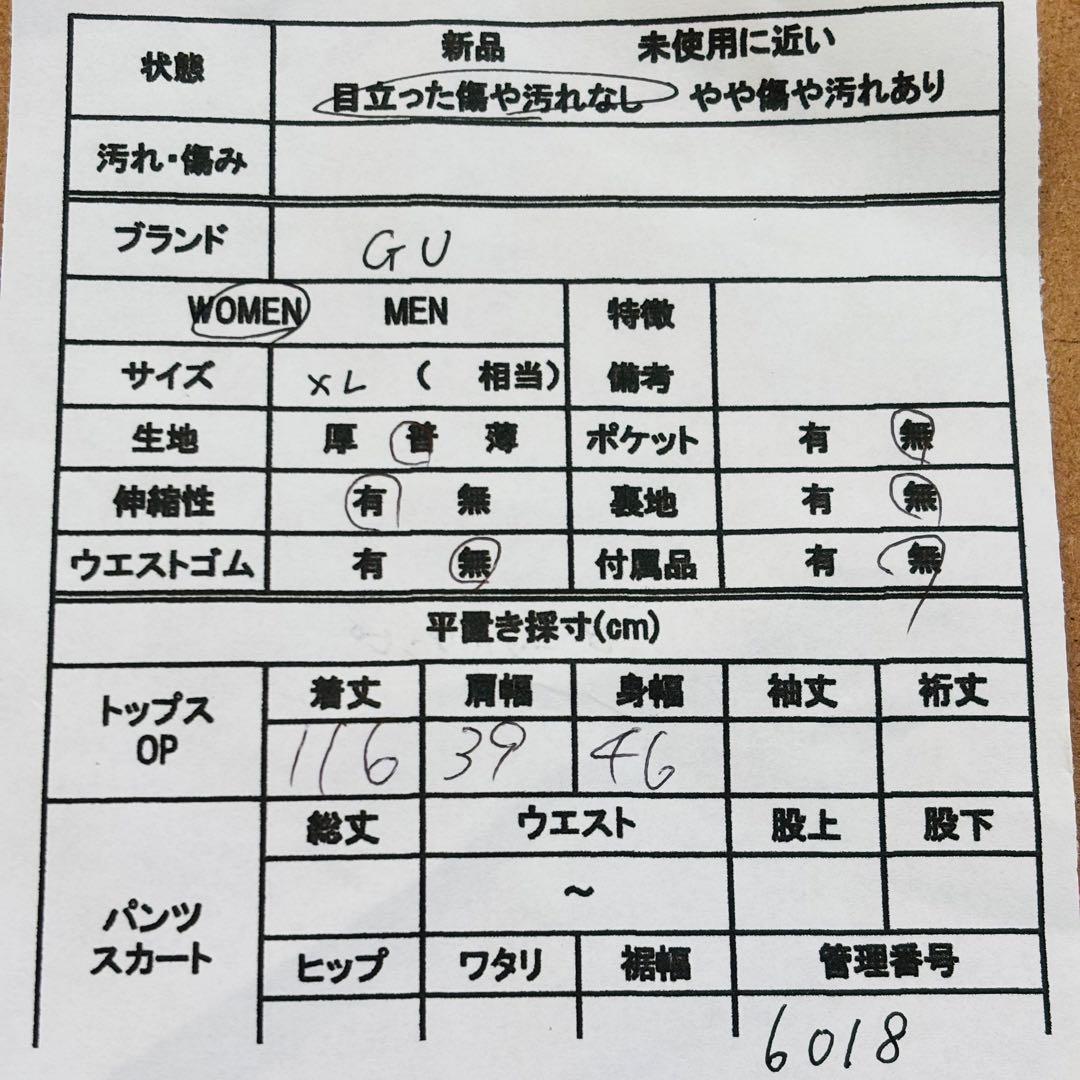 状態 新品 未使用に近い
目立った傷や汚れなし やや傷や汚れあり
汚れ・傷み
ブランド GU
WOMEN MEN 特徴
サイズ XL ( 相当) 備考
生地 厚 普 薄 ポケット 有 無
伸縮性 有 無 裏地 有 無
ウエストゴム 有 無 付属品 有 無
平置き採寸(cm)
トップス OP 着丈 肩幅 身幅 袖丈 裄丈
116 39 46
パンツ スカート 総丈 ウエスト 股上 股下
～
ヒップ ワタリ 裾幅 管理番号
6018